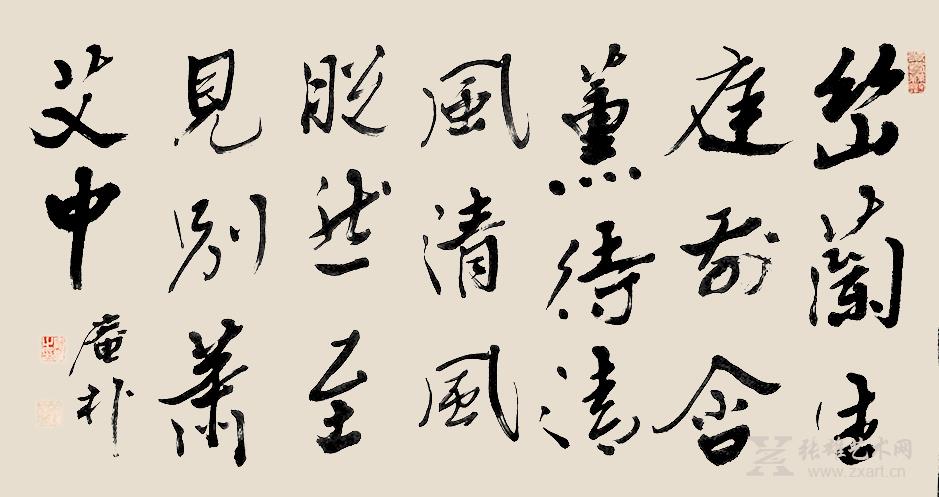 幽蘭生
庭前含
薰待清
風清風
脱然至
見別蕭
艾中
庵朴
张雄艺术网
www.zxart.cn